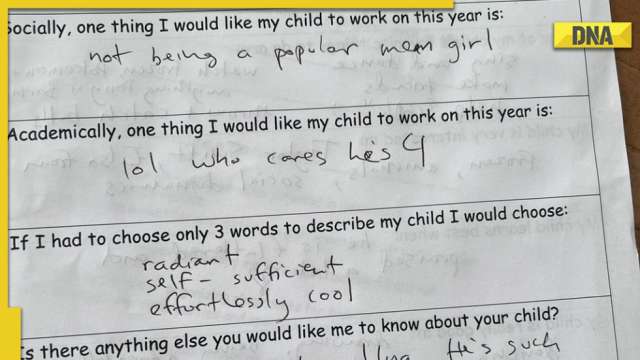 DNA
Socially, one thing I would like my child to work on this year is:
not being a popular mean girl
Academically, one thing I would like my child to work on this year is:
lol who cares he's 4
If I had to choose only 3 words to describe my child I would choose:
radiant
self-sufficient
effortlessly cool
Is there anything else you would like me to know about your child?
He's such